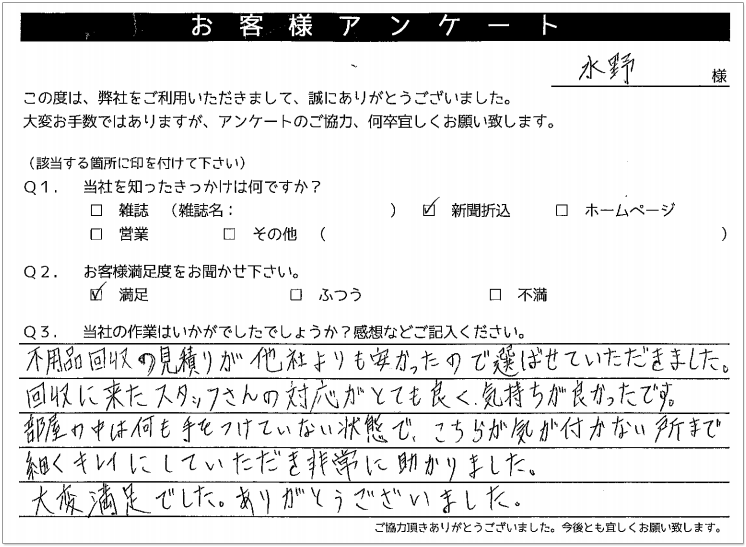 お客様アンケート
水野 様
この度は、弊社をご利用いただきまして、誠にありがとうございました。
大変お手数ではありますが、アンケートのご協力、何卒宜しくお願い致します。
(該当する箇所に印を付けて下さい)
Q1. 当社を知ったきっかけは何ですか?
□ 雑誌 (雑誌名: ) ☑ 新聞折込 □ ホームページ
□ 営業 □ その他 ( )
Q2. お客様満足度をお聞かせ下さい。
☑ 満足 □ ふつう □ 不満
Q3. 当社の作業はいかがでしたでしょうか?感想などご記入ください。
不用品回収の見積りが他社よりも安かったので選ばせていただきました。
回収に来たスタッフさんの対応がとても良く、気持ちが良かったです。
部屋の中は何も手をつけていない状態で、こちらが気が付かない所まで
細くキレイにしていただき非常に助かりました。
大変満足でした。ありがとうございました。
ご協力頂きありがとうございました。今後とも宜しくお願い致します。